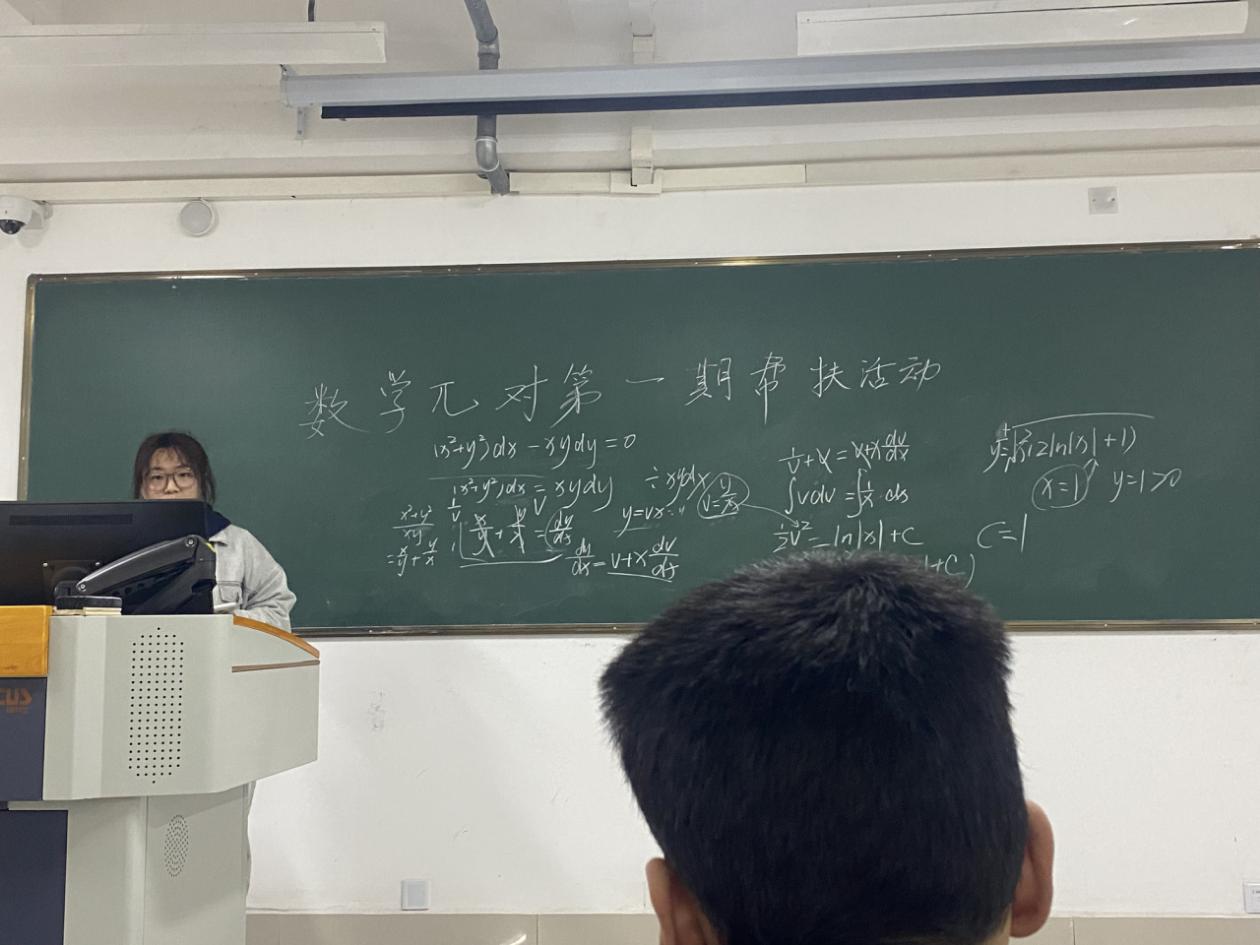 数学兀对第一期帮扶活动
(x²+y²)dx - xydy = 0
(x²+y²)dx = xydy ÷ xydx
x²+y²/xy
= x/y + y/x
1/v V
x/y + y/x = dy/dx
y=vx
v=y/x
dy/dx = v+x dv/dx
1/v + v = v+x dv/dx
∫vdv = ∫1/x · dx
1/2 v² = ln|x|+C
+C)
y=±√x²(2ln|x|+1)
x=1 y=1>0
C=1
CUS